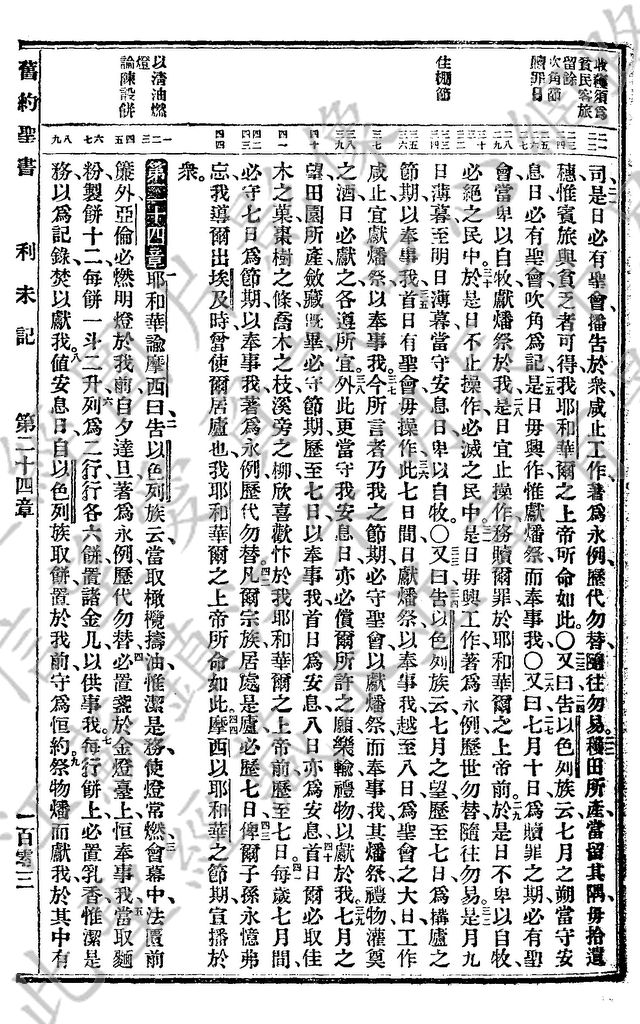 收穫須爲
貧民客旅
留餘
吹角節
贖罪日
住棚節
以清油燃
燈
論陳設餅
司是日必有聖會播告於衆咸止工作著爲永例歷代勿替隨往勿易穫田所產當留其隅毋拾遺
穗惟賓旅與貧乏者可得我耶和華爾之上帝所命如此〇又曰告以色列族云七月之朔當守安
息日必有聖會吹角爲記是日毋興作惟獻燔祭而奉事我〇又曰七月十日爲贖罪之期必有聖
會當卑以自牧獻燔祭於我是日宜止操作務贖爾罪於耶和華爾之上帝前於是日不卑以自牧
必絕之民中於是日不止操作必滅之民中是日毋興工作著爲永例歷世勿替隨往勿易是月九
日薄暮至明日薄暮當守安息日卑以自牧〇又曰告以色列族云七月之望歷至七日爲搆廬之
節期以奉事我首日有聖會毋操作此七日間日獻燔祭以奉事我越至八日爲聖會之大日工作
咸止宜獻燔祭以奉事我今所言者乃我之節期必守聖會以獻燔祭而奉事我其燔祭禮物灌奠
之酒日必獻之各遵所宜外此更當守我安息日亦必償爾所許之願樂輸禮物以獻於我七月之
望田園所產斂藏旣畢必守節期歷至七日以奉事我首日爲安息八日亦爲安息首日爾必取佳
木之菓棗樹之條喬木之枝溪旁之柳欣喜歡忭於我耶和華爾之上帝前歷至七日每歲七月間
必守七日爲節期以奉事我著爲永例歷代勿替凡爾宗族居處是廬必歷七日俾爾子孫永憶弗
忘我導爾出埃及時曾使爾居廬也我耶和華爾之上帝所命如此摩西以耶和華之節期宣播於
衆。
第二十四章 耶和華諭摩西曰告以色列族云當取橄欖擣油惟潔是務使燈常燃會幕中法匱前
簾外亞倫必燃明燈於我前自夕達旦著爲永例歷代勿替必置盞於金燈臺上恒奉事我當取麵
粉製餅十二每餅一斗二升列爲二行行各六餅置諸金几以供事我每行餅上必置乳香惟潔是
務以爲記錄焚以獻我值安息日自以色列族取餅置於我前守爲恒約祭物燔而獻我於其中有
舊約聖書 利未記 第二十四章 一百零三